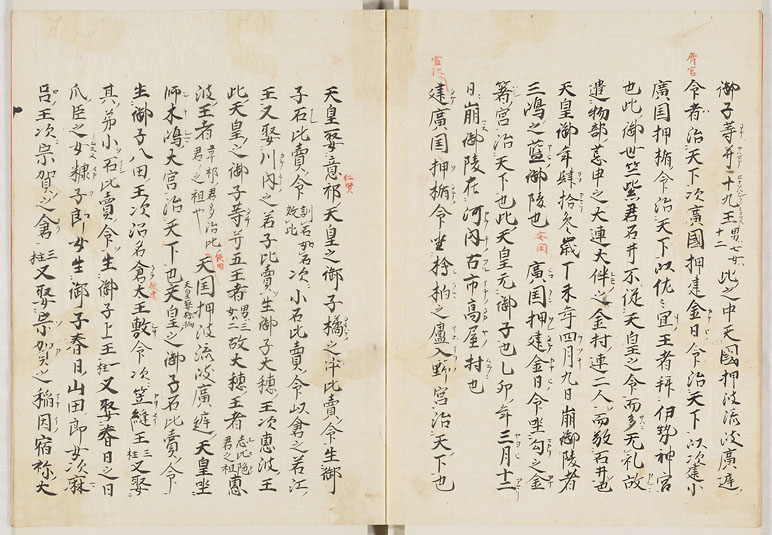 御子等并十九王男七女十二此之中天國押波流波廣庭
齋宮
令者治天下次廣國押建金日令治天下以次建小
廣国押楯令治天下以佐〻冝王者拜伊勢神宮
也此御世竺紫君石井不従天皇之令而多无礼故
遣物部荒甲之大連大伴之金村連二人而敎石井也
天皇御年肆拾参歳丁未年四月九日崩御陵者
三嶋之藍御陵也安閑廣国押建金日令坐勾之金
箸宮治天下也此天皇无御子也乙卯年三月十三
日崩御陵在河内古市高屋村也
宣化
建廣国押楯令坐桧柏之廬入野宮治天下也
天皇娶意祁天皇之御子橘之中比賣令生御
仁賢
子石比賣令訓石如石效此次小石比賣令次倉之若江
王又娶川内之若子比賣生御子火穂王次恵波王
此天皇之御子等并五王者男三女二故火穂王者志比陀君之祖恵
波王者韋那君多治比君之祖也欽明天国押波流波廣庭天皇坐
師木嶋大宮治天下也天皇娶桧坰天皇之御子石比賣令
生御子八田王次沼名倉太玉敷令次笠縫王三柱又娶
敏達
其弟小石比賣令生御子上王一柱又娶春日之日
爪臣之女糠子郎女生御子春日山田郎女次麻
呂王次宗賀之倉三柱又娶宗賀之稲目宿祢大